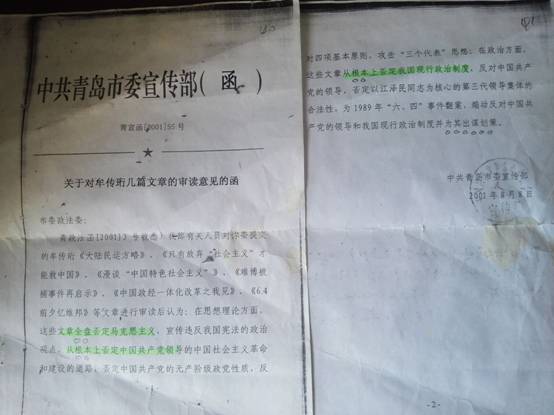 中共青岛市委宣传部(函)
青宣函[2001]55号
关于对牟传珩几篇文章的审读意见的函
市委政法委:
青政法函[2001]3号收悉,我部有关人员对你委提交
的牟传珩《大陆民运方略》、《只有放弃"社会主义"才
能救中国》、《漫谈"中国特色社会主义"》、《维博被
捕事件再启示》、《中国政经一体化改革之我见》、《6.4
前夕忆维邦》等文章进行审读后认为:在思想理论方面,
这些文章全盘否定马克思主义,宣传违反我国宪法的政治
观点,从根本上否定中国共产党领导的中国社会主义革命
和建设的道路,否定中国共产党的无产阶级政党性质,反
对四项基本原则,攻击"三个代表"思想;在政治方面,
这些文章从根本上否定我国现行政治制度,反对中国共产
党的领导,否定以江泽民同志为核心的第三代领导集体的
合法性,为1989年"六、四"事件翻案,煽动反对中国共
产党的领导和我国现行政治制度并为其出谋划策。
中共青岛市委宣传部
2001年8月 日
-2-